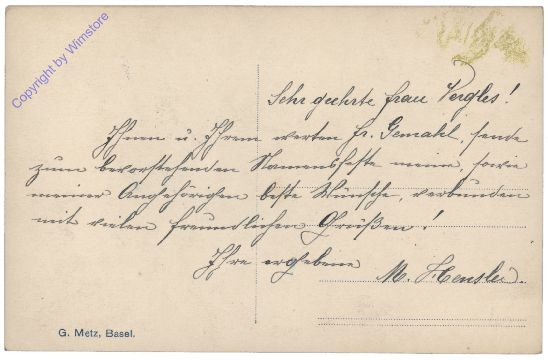 Copyright by Wimstore
Sehr geehrte Frau Vergles!
Ihnen u. Ihrem werten Hr. Gemahl, sende
zum bevorstehenden Namensfeste meine, sowie
meiner Angehörigen beste Wünsche, verbunden
mit vielen freundlichen Grüßen!
Ihre ergebene
M. Hensler.
G. Metz, Basel.